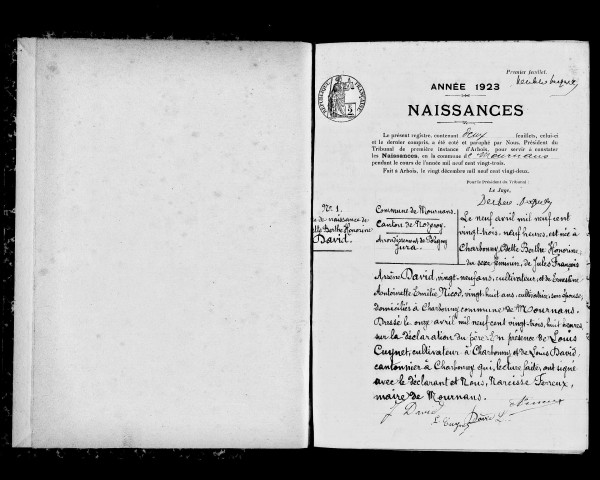 Premier feuillet.
ANNÉE 1923
NAISSANCES
RÉPUBLIQUE FRANÇAISE
Le présent registre, contenant deux feuillets, celui-ci
et le dernier compris, a été coté et paraphé par Nous, Président du
Tribunal de première instance d'Arbois, pour servir à constater
les Naissances, en la commune de Mournans
pendant le cours de l'année mil neuf cent vingt-trois.
Fait à Arbois, le vingt décembre mil neuf cent vingt-deux.
Pour le Président du Tribunal :
Le Juge,
No 1.
de naissance de
Berthe Honorine
David.
Commune de Mournans.
Canton de Nozeroy.
Arrondissement de Poligny
Jura.
Le neuf avril mil neuf cent
vingt-trois, neuf heures, est née à
Charbonny, Odette Berthe Honorine
du sexe féminin, de Jules François
Arsène David, vingt-neuf ans, cultivateur, et de Ernestine
Antoinette Emilie Nicod, vingt-huit ans, cultivatrice, son épouse,
domiciliés à Charbonny commune de Mournans.
Dressé le onze avril mil neuf cent vingt-trois, huit heures
sur la déclaration du père. En présence de Louis
Cuynet, cultivateur à Charbonny et de Louis David,
cantonnier à Charbonny qui, lecture faite, ont signé
avec le déclarant et Nous, Narcisse Ferreux,
maire de Mournans.
J David
L Cuynet David L.